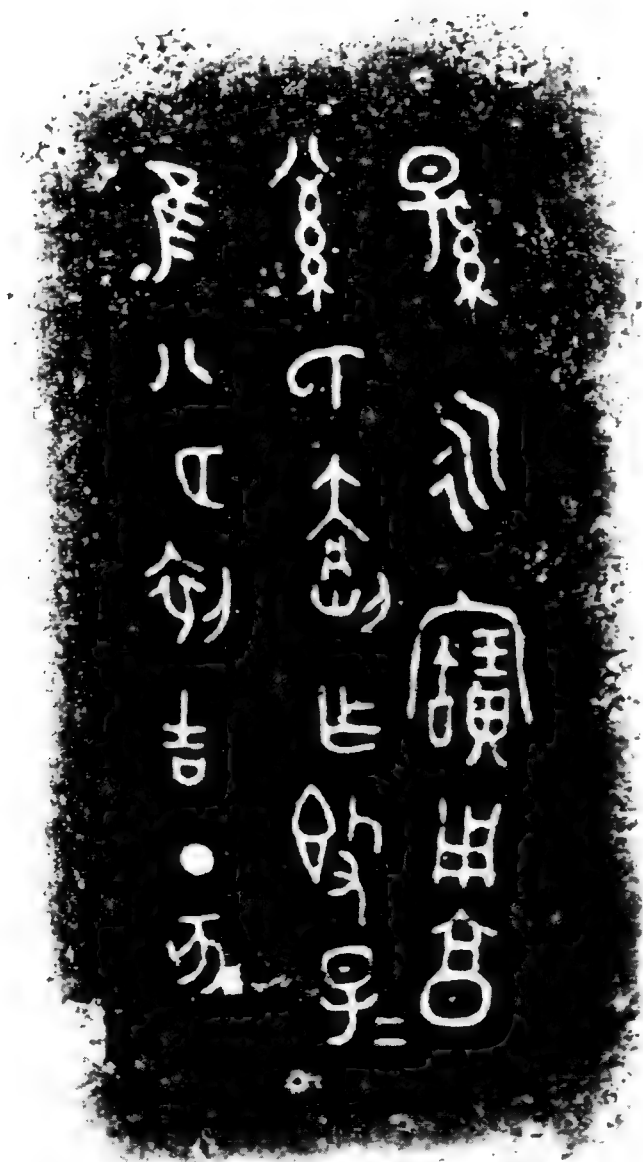 隹八月初吉丁亥
乍𣪘子=
孫永寶用享